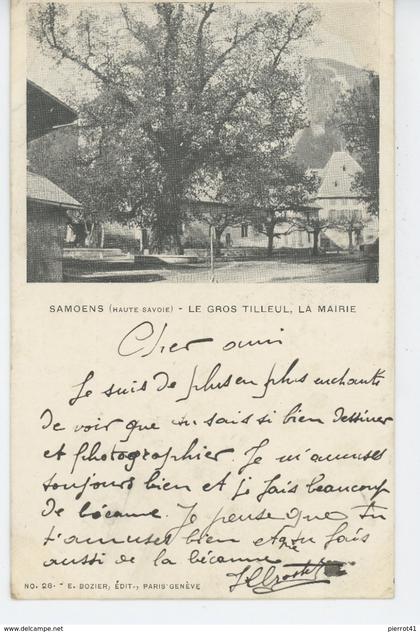 SAMOENS (HAUTE SAVOIE) - LE GROS TILLEUL, LA MAIRIE
Cher ami
Je suis de plus en plus enchanté
de voir que tu sais si bien dessiner
et photographier. Je m'amuse
toujours bien et je fais beaucoup
de bécane. Je pense que tu
t'amuses bien et que tu fais
aussi de la bécane
NO. 28 - E. BOZIER, ÉDIT., PARIS-GENÈVE
www.delcampe.net
pierrot41